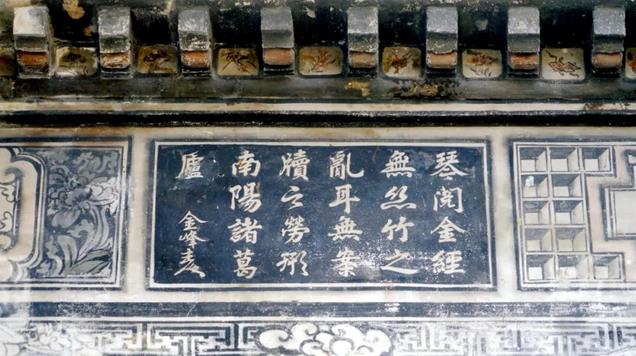 琴閲金經
無丝竹之
亂耳無案
牘之勞形
南陽諸葛
廬
金峰